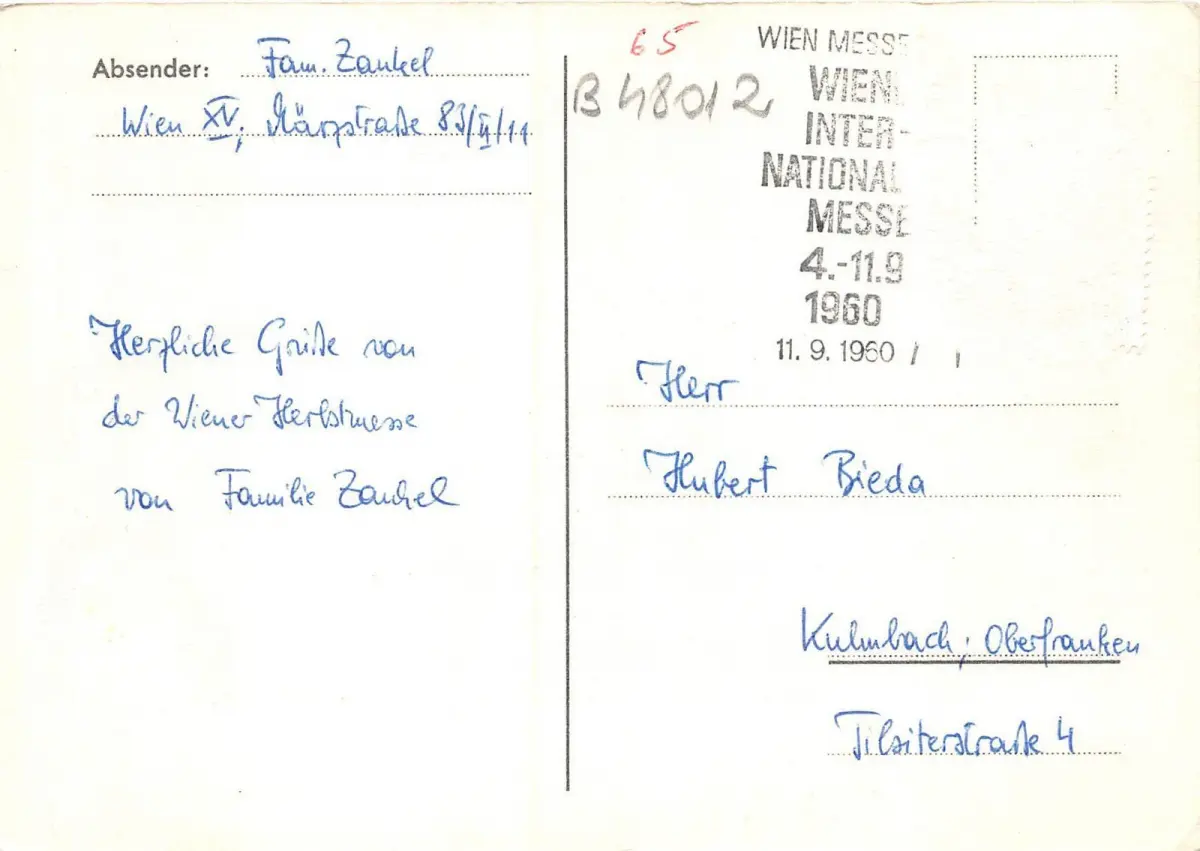 Absender: Fam. Zankel
Wien XV, Märzstraße 83/II/11
Herzliche Grüße von
der Wiener Herbstmesse
von Familie Zankel
65
B 48012
WIEN MESSE
WIEN
INTER-
NATIONAL
MESSE
4.-11.9
1960
11. 9. 1960
Herr
Hubert Bieda
Kulmbach, Oberfranken
Tilsiterstraße 4